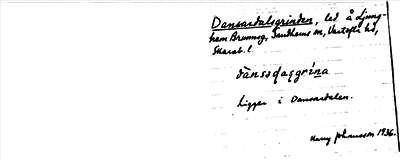 Dansaredalsgrinden, led å Ljung-
hem Brunnsg, Sandhems sn, Vartofta hd,
Skarab. l.
dànsədaɐgrína
Ligger i Dansaredalen.
Harry Johansson 1936.